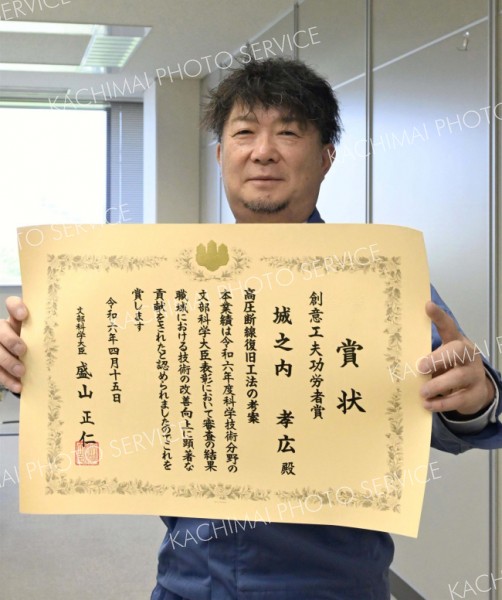 賞状
創意工夫功労者賞
城之内 孝広 殿
高圧断線復旧工法の考案
本業績は令和六年度科学技術分野の
文部科学大臣表彰において審査の結果
職域における技術の改善向上に顕著な
貢献をされたと認められましたのでこれを
賞します
令和六年四月十五日
文部科学大臣 盛山正仁
KACHIMAI PHOTO SERVICE
KACHIMAI PHOTO SERVICE
KACHIMAI PHOTO SERVICE
KACHIMAI PHOTO SERVICE